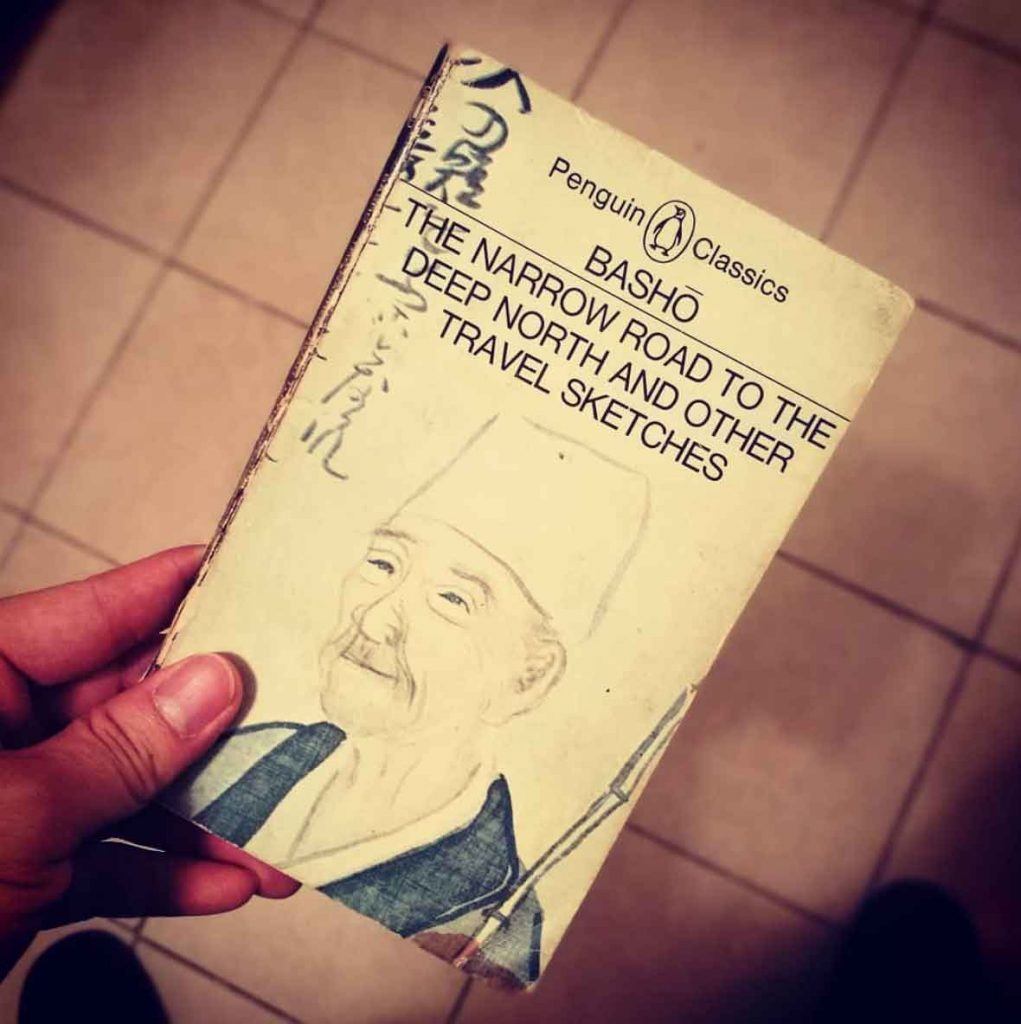 Penguin Classics
BASHŌ
THE NARROW ROAD TO THE
DEEP NORTH AND OTHER
TRAVEL SKETCHES